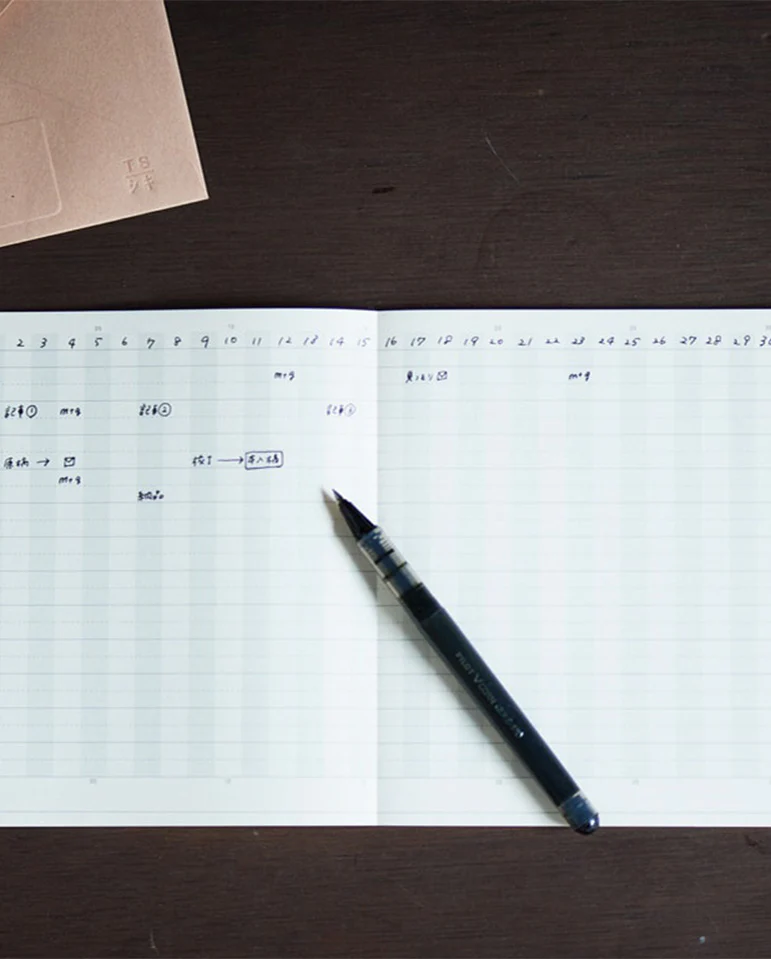 TS
2 3 4 5 6 7 8 9 10 11 12 13 14 15 16 17 18 19 20 21 22 23 24 25 26 27 28 29 30
mtg 見つもり mtg
記事① mtg 記事② 記事③
原稿 → 校了 → 再入稿
mtg
納品
PILOT V CORN